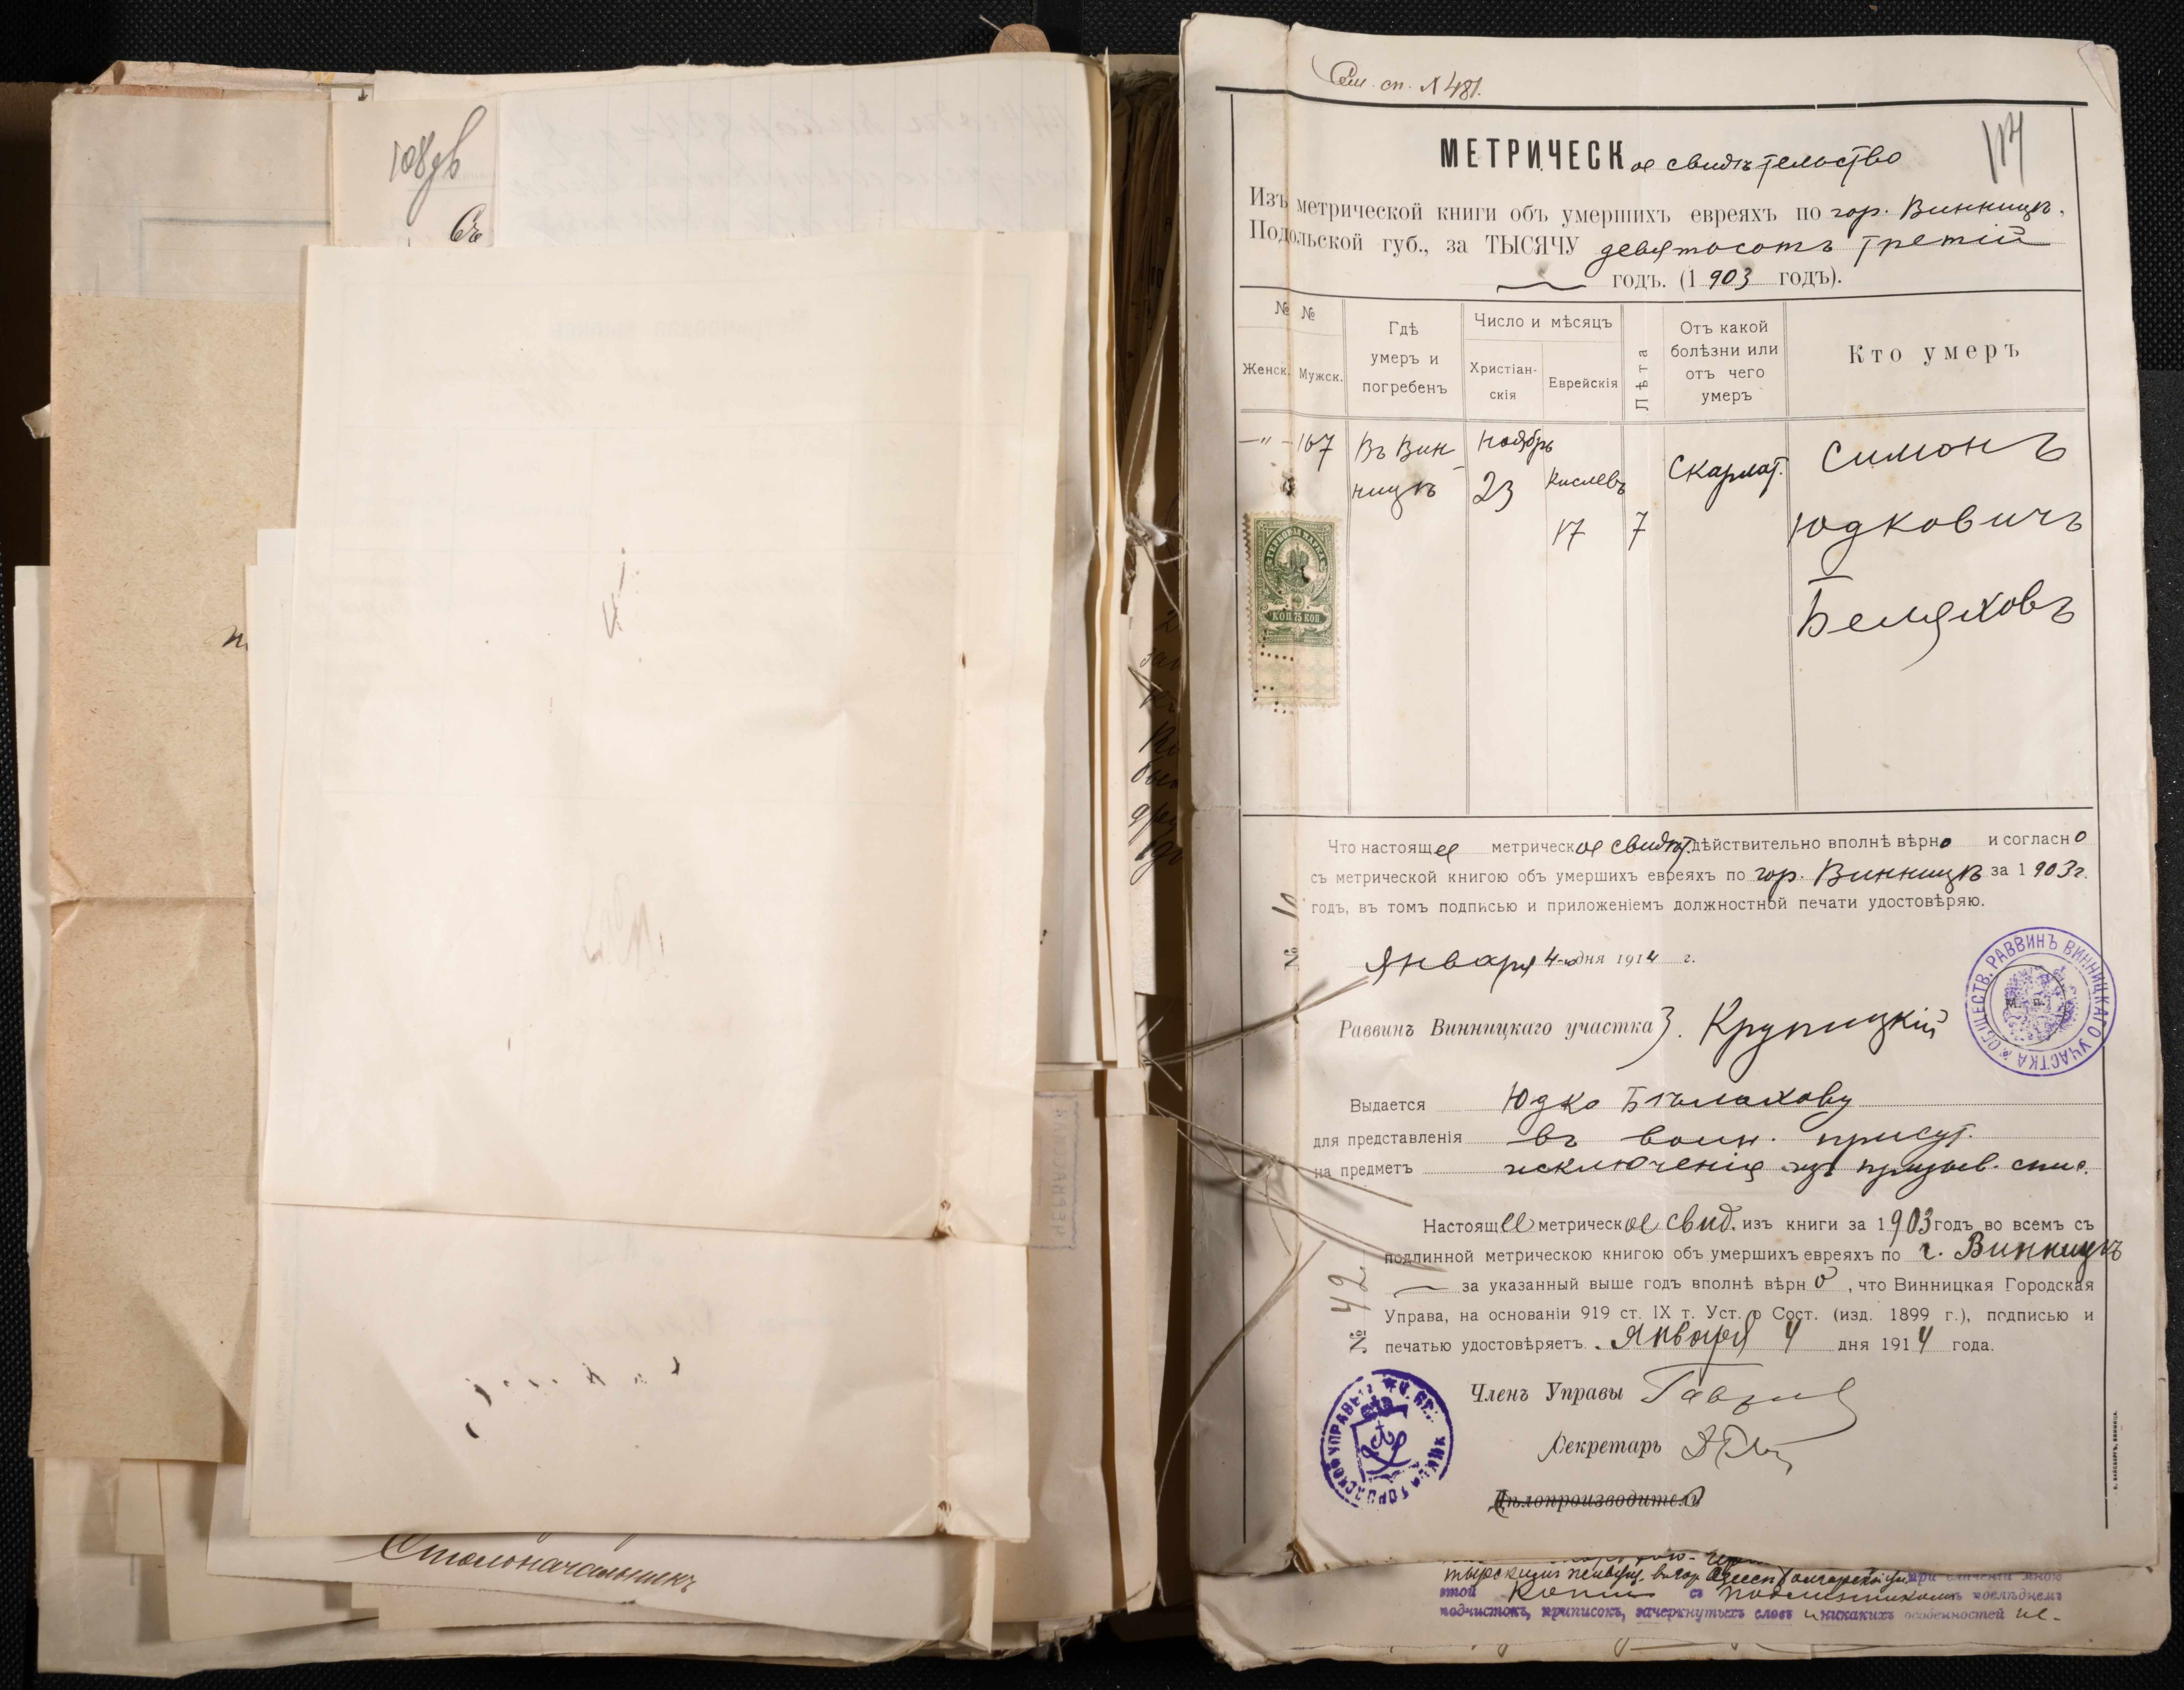 108 дѣ
Съ
Столоначальникъ
Сем. сп. № 481.
МЕТРИЧЕСКое свидѣтельство
Изъ метрической книги объ умершихъ евреяхъ по гор. Винницѣ,
Подольской губ., за ТЫСЯЧУ девятосотъ третій
годъ. (1903 годъ).
№ №
Женск. Мужск.
Гдѣ
умеръ и
погребенъ
Число и мѣсяцъ
Христіан-
скія
Еврейскія
Лѣта
Отъ какой
болѣзни или
отъ чего
умеръ
Кто умеръ
—"— 167 Въ Вин- Ноябрь Скарлат. Симонъ
ницѣ 23 Кислевъ
17 7 Юдковичъ
Беляховъ
ГЕРБОВАЯ МАРКА
75 КОП
Что настоящее метрическое свидѣт. дѣйствительно вполнѣ вѣрно и согласно
съ метрической книгою объ умершихъ евреяхъ по гор. Винницѣ за 1903 г.
годъ, въ томъ подписью и приложеніемъ должностной печати удостовѣряю.
№ 10
Января 4-го дня 1914 г.
Раввинъ Винницкаго участка З. Крупицкій
ОБЩЕСТВ. РАВВИНЪ ВИННИЦКАГО УЧАСТКА
М. п.
Выдается Юдко Бѣлахову
для представленія въ воин. присут.
на предметъ исключенія изъ призыв. спис.
Настоящее метрическое свид. изъ книги за 1903 годъ во всемъ съ
подлинной метрическою книгою объ умершихъ евреяхъ по г. Винницѣ
за указанный выше годъ вполнѣ вѣрно, что Винницкая Городская
Управа, на основаніи 919 ст. IX т. Уст. о Сост. (изд. 1899 г.), подписью и
печатью удостовѣряетъ. Января 4 дня 1914 года.
№ 42
Членъ Управы
Секретарь
Дѣлопроизводитель
при сличеніи мною
этой Копіи съ подлинникомъ въ послѣднемъ
подчистокъ, приписокъ, зачеркнутыхъ словъ и никакихъ особенностей не-